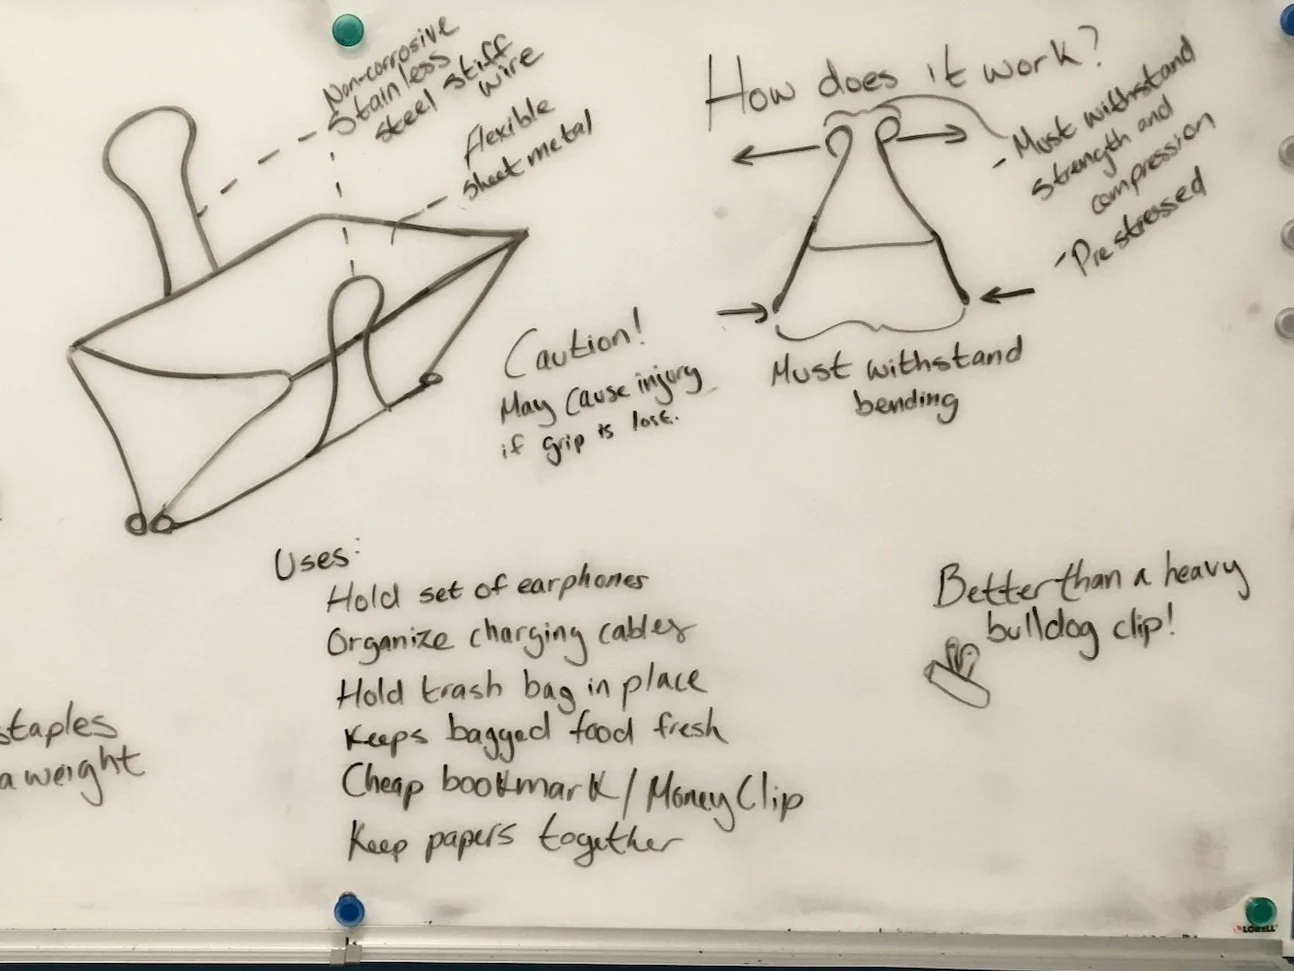 Non-corrosive
Stainless
steel stiff
wire
flexible
sheet metal
How does it work?
- Must withstand
strength and
compression
- Pre stressed
Caution!
May cause injury
if grip is lose.
Must withstand
bending
Uses:
Hold set of earphones
Organize charging cables
Hold trash bag in place
Keeps bagged food fresh
Cheap bookmark / Money Clip
Keep papers together
Better than a heavy
bulldog clip!
staples
a weight